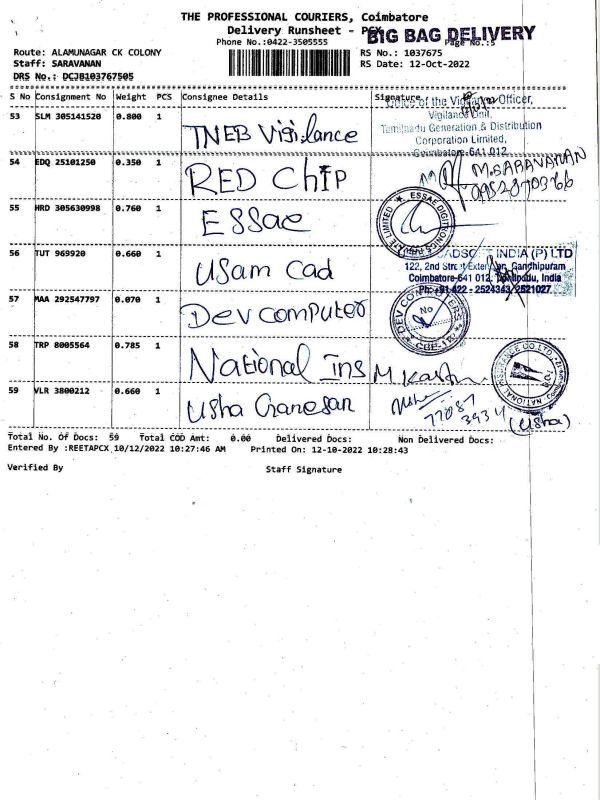 THE PROFESSIONAL COURIERS, Coimbatore
Delivery Runsheet - PCX
BIG BAG DELIVERY
Phone No.:0422-3505555
Page No.:5
Route: ALAMUNAGAR CK COLONY
RS No.: 1037675
Staff: SARAVANAN
RS Date: 12-Oct-2022
DRS No.: DCJB103767505
S No Consignment No Weight PCS Consignee Details Signature
53 SLM 305141520 0.800 1 TNEB Vigilance
Office of the Vigilance Officer,
Vigilance Unit,
Tamilnadu Generation & Distribution
Corporation Limited,
Coimbatore-641 012
54 EDQ 25101250 0.350 1 RED ChIP
M.SARAVANAN
55 HRD 305630998 0.760 1 ESSae
ESSAE DIGITRONICS PRIVATE LIMITED
56 TUT 969920 0.660 1 Usam Cad
INDIA (P) LTD
122, 2nd Street Extension, Gandhipuram
Coimbatore-641 012, Tamilnadu, India
Ph: +91 422 - 2524343, 2521027
57 MAA 292547797 0.070 1 Dev computer
DEV COMPUTERS
No
CBE-12
58 TRP 8005564 0.785 1 National Ins
NATIONAL INSURANCE CO. LTD.
59 VLR 3800212 0.660 1 Usha Ganesan
77087
3934
(Usha)
Total No. Of Docs: 59 Total COD Amt: 0.00 Delivered Docs: Non Delivered Docs:
Entered By :REETAPCX 10/12/2022 10:27:46 AM Printed On: 12-10-2022 10:28:43
Verified By Staff Signature